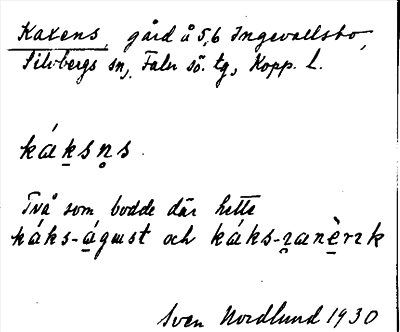 Kaxens, gård å 5,6 Ingevallsbo,
Silvbergs sn, Falu sö. tg, Kopp. l.
káksn̥s.
Två som bodde där hette
káks-águst och káks-
Sven Nordlund 1930